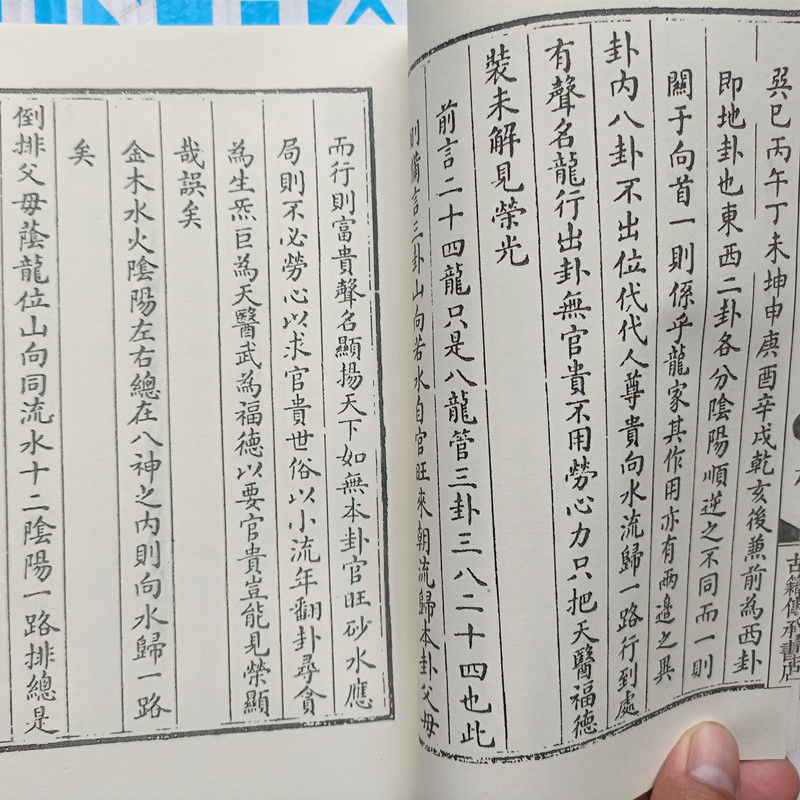 巽巳丙午丁未坤申庚酉辛戌乾亥後兼前為西卦
即地卦也東西二卦各分陰陽順逆之不同而一則
關于向首一則係乎龍家其作用亦有兩邉之異
卦內八卦不出位代代人尊貴向水流歸一路行到處
有聲名龍行出卦無官貴不用勞心力只把天醫福德
裝未解見榮光
前言二十四龍只是八龍管三卦三八二十四也此
則備言三卦山向若水自官旺來朝流歸本卦父母
而行則富貴聲名顯揚天下如無本卦官旺砂水應
局則不必勞心以求官貴世俗以小流年翻卦尋貪
為生炁巨為天醫武為福德以要官貴豈能見榮顯
哉誤矣
金木水火陰陽左右總在八神之內則向水歸一路
矣
倒排父母蔭龍位山向同流水十二陰陽一路排總是
古籍傳承書店